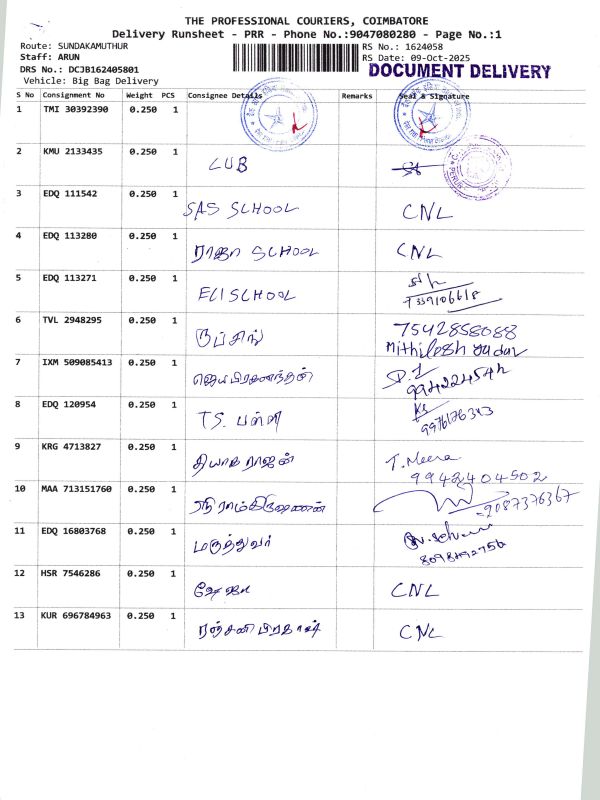 THE PROFESSIONAL COURIERS, COIMBATORE
Delivery Runsheet - PRR - Phone No.:9047080280 - Page No.:1
Route: SUNDAKAMUTHUR
RS No.: 1624058
Staff: ARUN
RS Date: 09-Oct-2025
DRS No.: DCJB162405801
DOCUMENT DELIVERY
Vehicle: Big Bag Delivery
S No Consignment No Weight PCS Consignee Details Remarks Seal & Signature
1 TMI 30392390 0.250 1
2 KMU 2133435 0.250 1 LUB
3 EDQ 111542 0.250 1 SAS SCHOOL CNL
4 EDQ 113280 0.250 1 ராஜா SCHOOL CNL
5 EDQ 113271 0.250 1 ECI SCHOOL
6 TVL 2948295 0.250 1 ரூப்சிங் 7542858088
Mithilesh yadav
7 IXM 509085413 0.250 1
8 EDQ 120954 0.250 1 TS. பள்ளி
9976176343
9 KRG 4713827 0.250 1 தியாகராஜன் T. Meera
9942404502
10 MAA 713151760 0.250 1 ஸ்ரீ ராம்கிருஷ்ணன் 9087376367
11 EDQ 16803768 0.250 1 மருத்துவர்
12 HSR 7546286 0.250 1 CNL
13 KUR 696784963 0.250 1 ரஞ்சனி பிரகாஷ் CNL